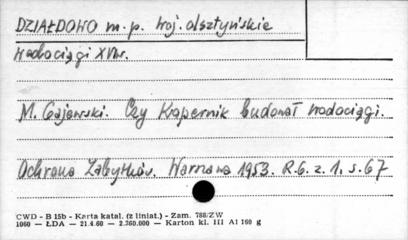 DZIAŁDOWO m.p. woj. olsztyńskie
Wodociągi XVI w.
M. Gajewski. Czy Kopernik budował wodociągi.
Ochrona Zabytków. Warszawa 1953. R.6. z. 1. s. 67
CWD - B 15b - Karta katal. (z liniat.) - Zam. 788/ZW
1060 — ŁDA — 21.4.60 — 2.360.000 — Karton kl. III A1 160 g